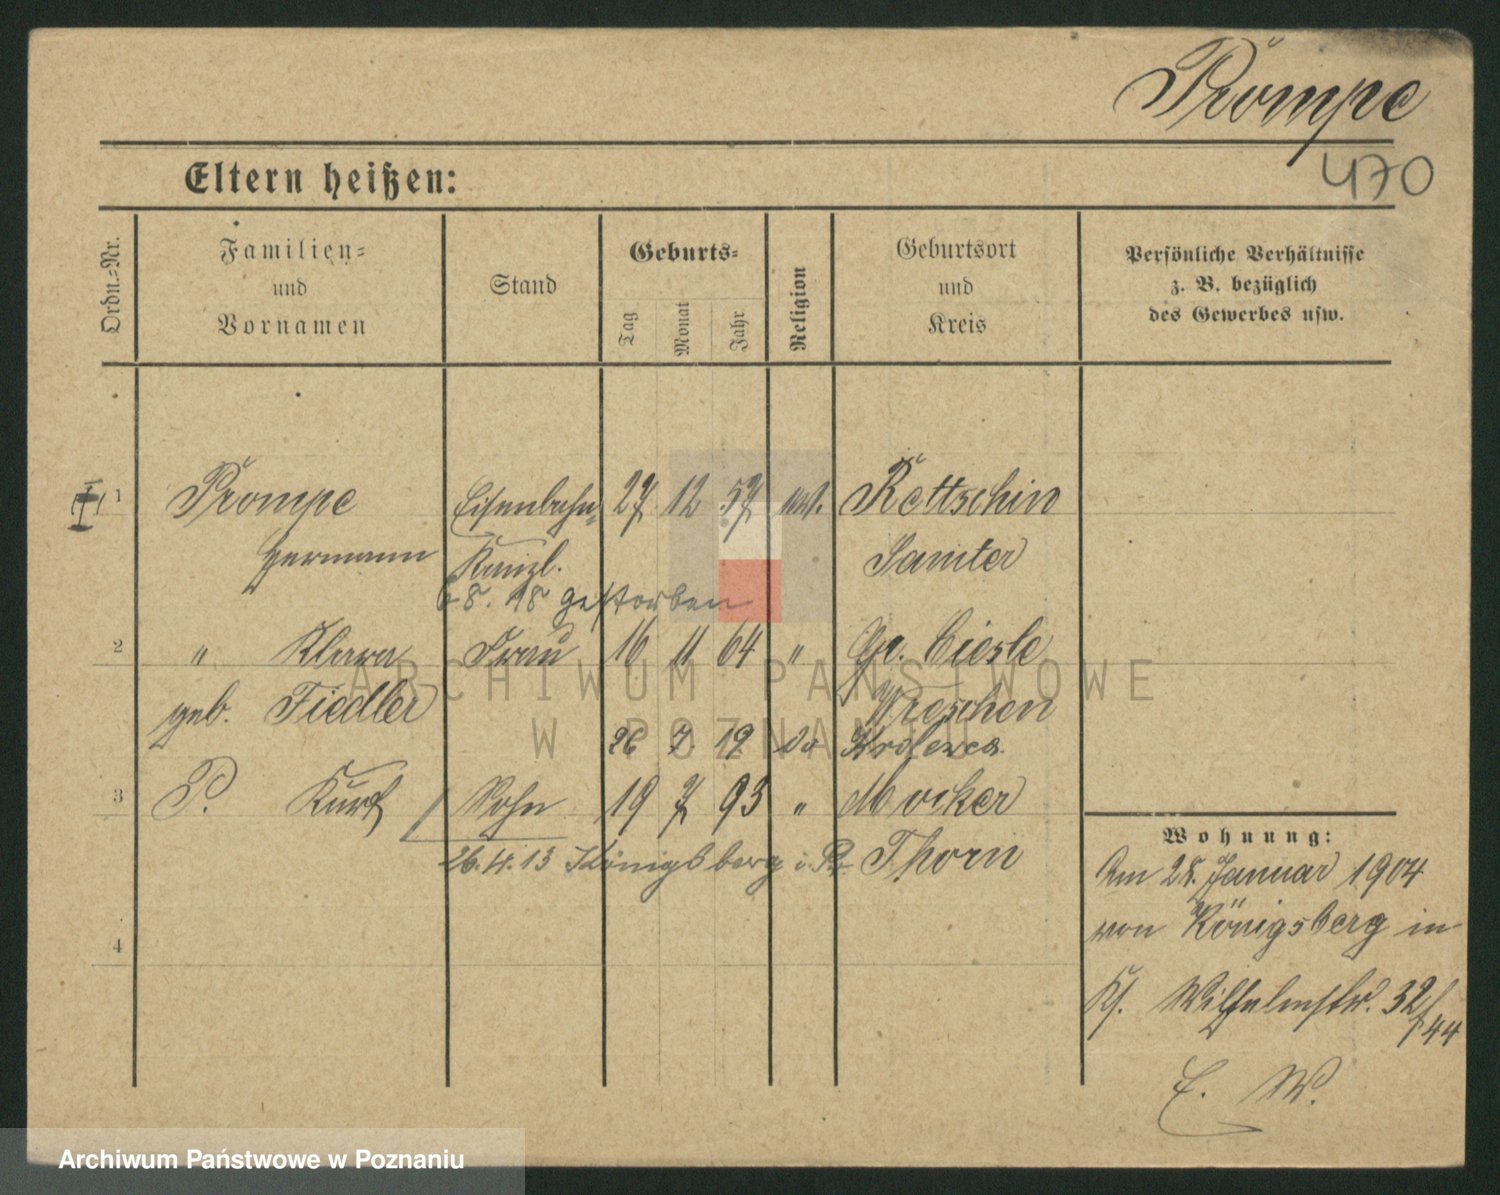 Prompe
470
Eltern heißen:
Ordn.=Nr.
Familien=
und
Vornamen
Stand
Geburts=
Tag
Monat
Jahr
Religion
Geburtsort
und
Kreis
Persönliche Verhältnisse
z. B. bezüglich
des Gewerbes usw.
1 Prompe Eisenbahn= 27 12 57 Rettschin
Hermann Kanzl. Samter
gestorben
2 " Klara Frau 16 11 64 " Gr.
geb. Fiedler Wreschen
26 7. 19
3 P. Kurt Sohn 19 7 93 " Mocker
26.4.13 Königsberg i. Pr. Thorn
4
Wohnung:
Am 28. Januar 1904
von Königsberg in
Wilhelmstr. 32/44
E. W.
ARCHIWUM PAŃSTWOWE
W POZNANIU
Archiwum Państwowe w Poznaniu